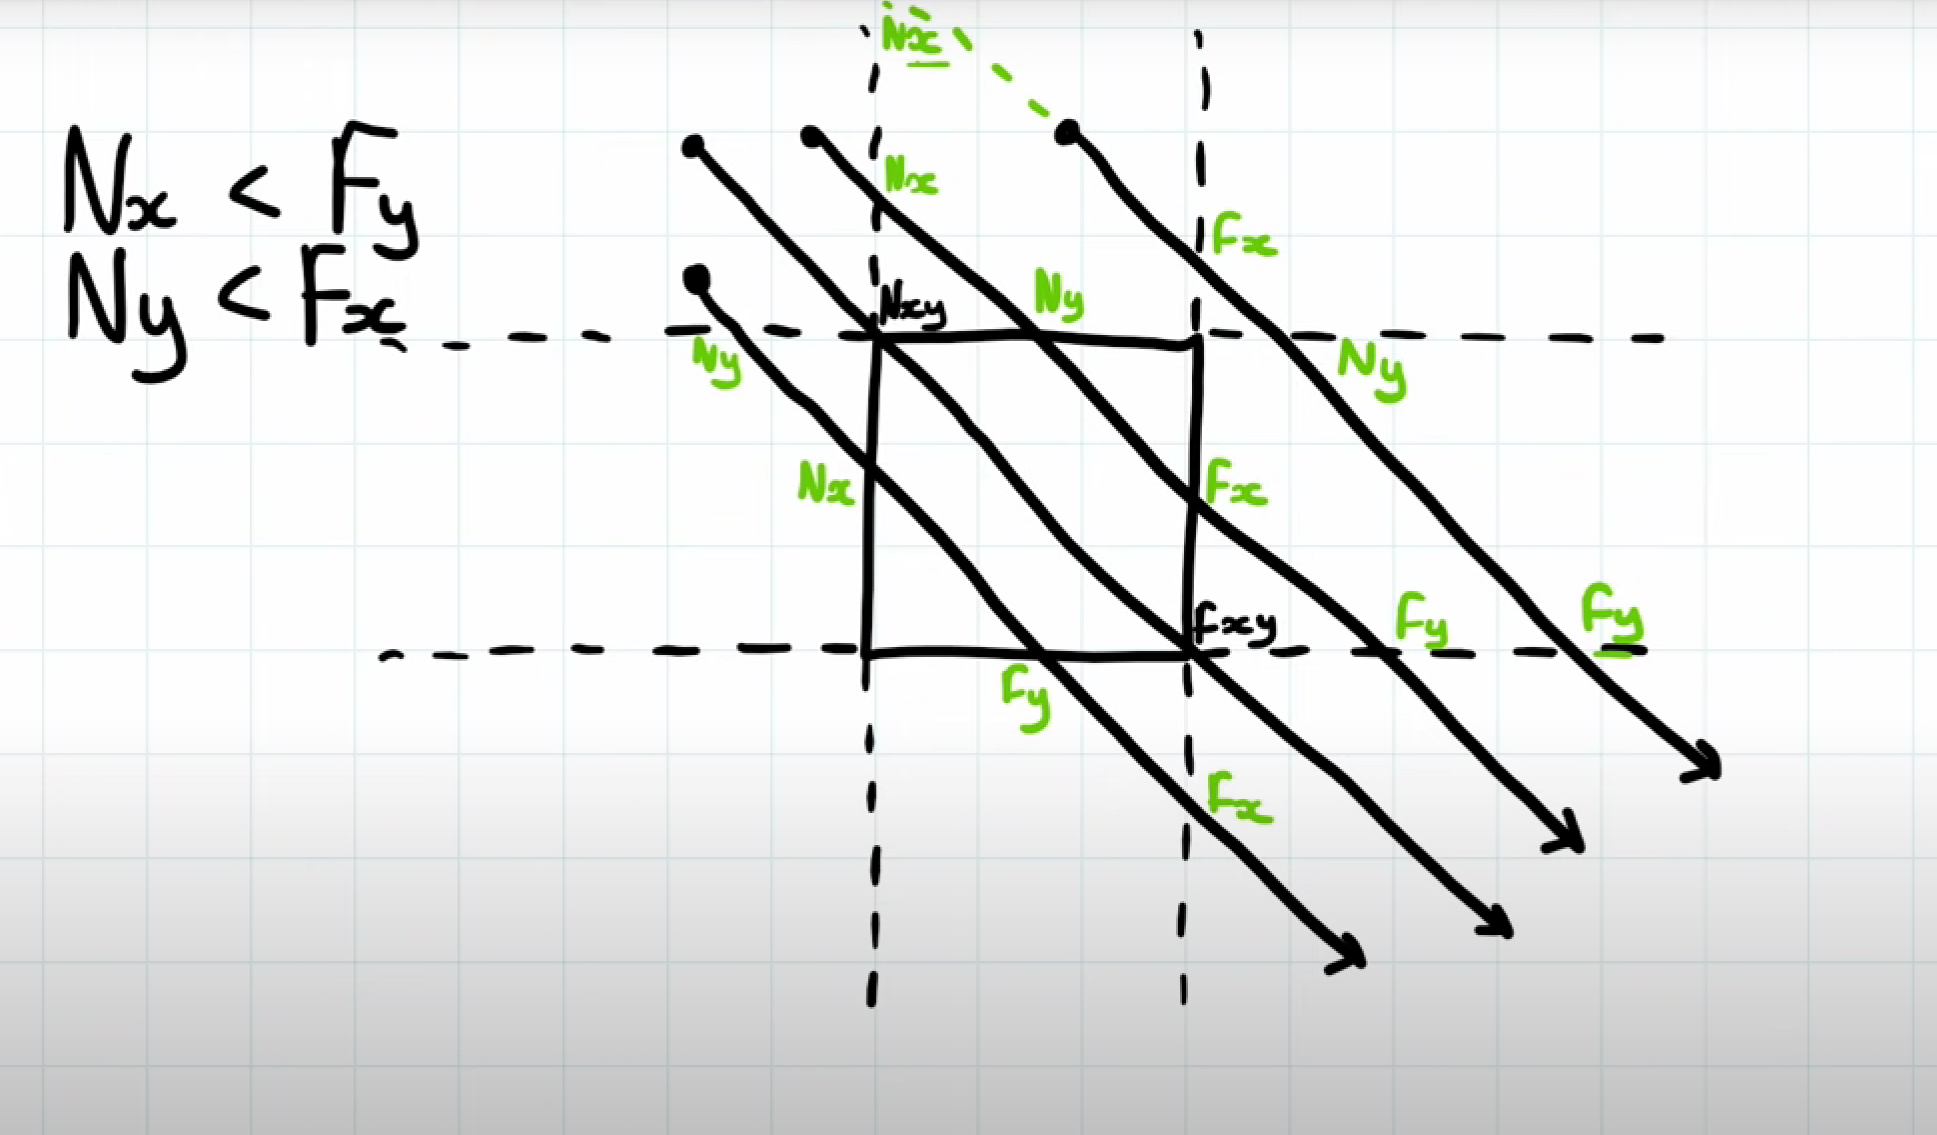 Nx
Nx < Fy
Nx
Fx
Ny < Fx
Nxy
Ny
Ny
Ny
Nx
Fx
Fxy
Fy
Fy
Fy
Fx